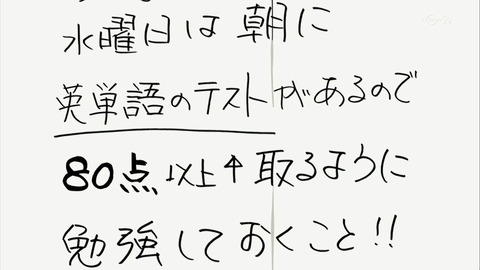 水曜日は朝に
英単語のテストがあるので
80点以上↑取るように
勉強しておくこと!!